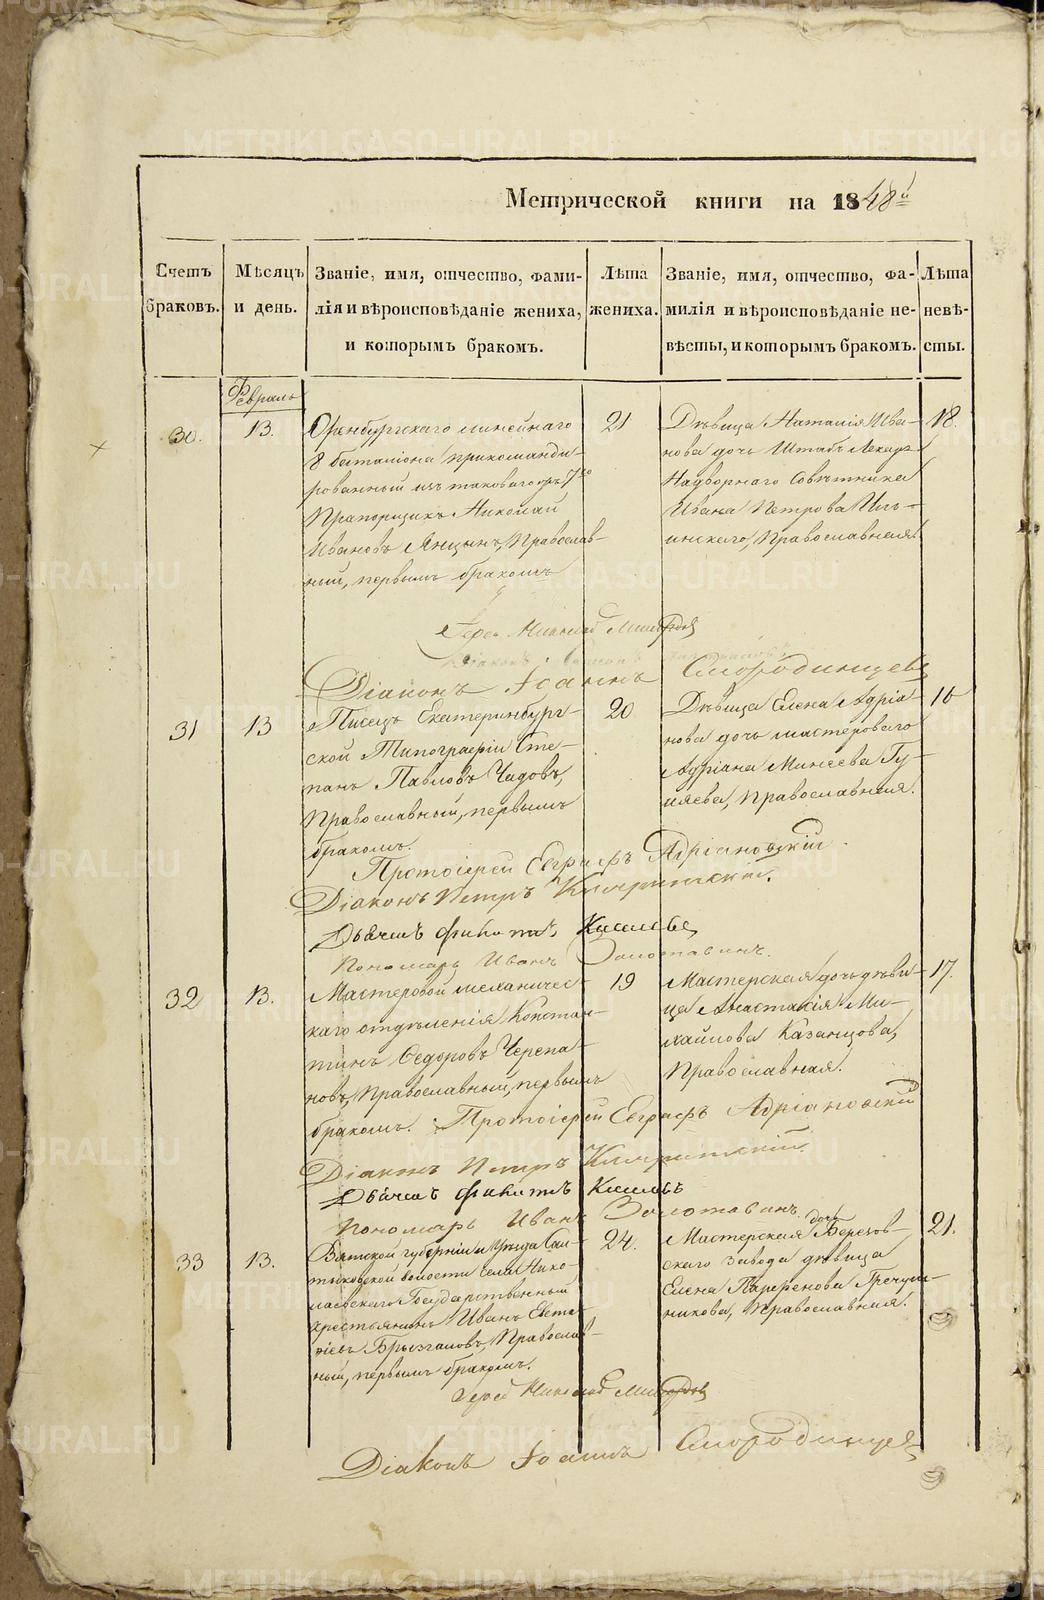 METRIKI.GASO-URAL.RU
Метрической книги на 1848й
Счетъ браковъ.
Мѣсяцъ и день.
Званіе, имя, отчество, фами-
лія и вѣроисповѣданіе жениха,
и которымъ бракомъ.
Лѣта жениха.
Званіе, имя, отчество, фа-
милія и вѣроисповѣданіе не-
вѣсты, и которымъ бракомъ.
Лѣта невѣ-
сты.
Февраль
30.
13.
Оренбургскаго линейнаго
8 баталіона прикоманди-
рованный изъ таковаго 7го
Прапорщикъ Николай
Ивановъ Янцынъ, Православ-
ный, первымъ бракомъ
21
Дѣвица Наталія Ива-
нова дочь Штабъ Лекаря
Надворнаго Совѣтника
Ивана Петрова Иль-
инскаго, Православная
18.
Іерей Николай
Діаконъ Іоаннъ Смородинцевъ
31
13
Писецъ Екатеринбург-
ской Типографіи Сте-
панъ Павловъ Чадовъ,
Православный, первымъ
бракомъ.
20
Дѣвица Елена Адріа-
нова дочь мастероваго
Адріана Минеева Гу-
ляева, Православная.
16
Протоіерей Евграфъ Адріановскій.
Діаконъ Петръ
Дьячекъ Филитъ Киселевъ
Пономарь Иванъ Золотавинъ.
32
13.
Мастеровой механичес-
каго отдѣленія Констан-
тинъ Ѳедоровъ Черепа-
новъ, Православный, первымъ
бракомъ.
19
Мастерская дочь дѣви-
ца Анастасія Ми-
хайлова Казанцова,
Православная.
17.
Протоіерей Евграфъ Адріановскій
Діаконъ Петръ
Дьячекъ Филитъ Киселевъ
Пономарь Иванъ Золотавинъ.
33
13.
Вятской губерніи и уѣзда Сал-
тыковской волости села Нико-
лаевскаго Государственный
крестьянинъ Иванъ Евста-
фіевъ Брызгаловъ, Православ-
ный, первымъ бракомъ.
24.
Мастерская дочь Березов-
скаго завода дѣвица
Елена Парфенова Гречуш-
никова, Православная.
21.
Іерей Николай
Діаконъ Іоаннъ Смородинцевъ